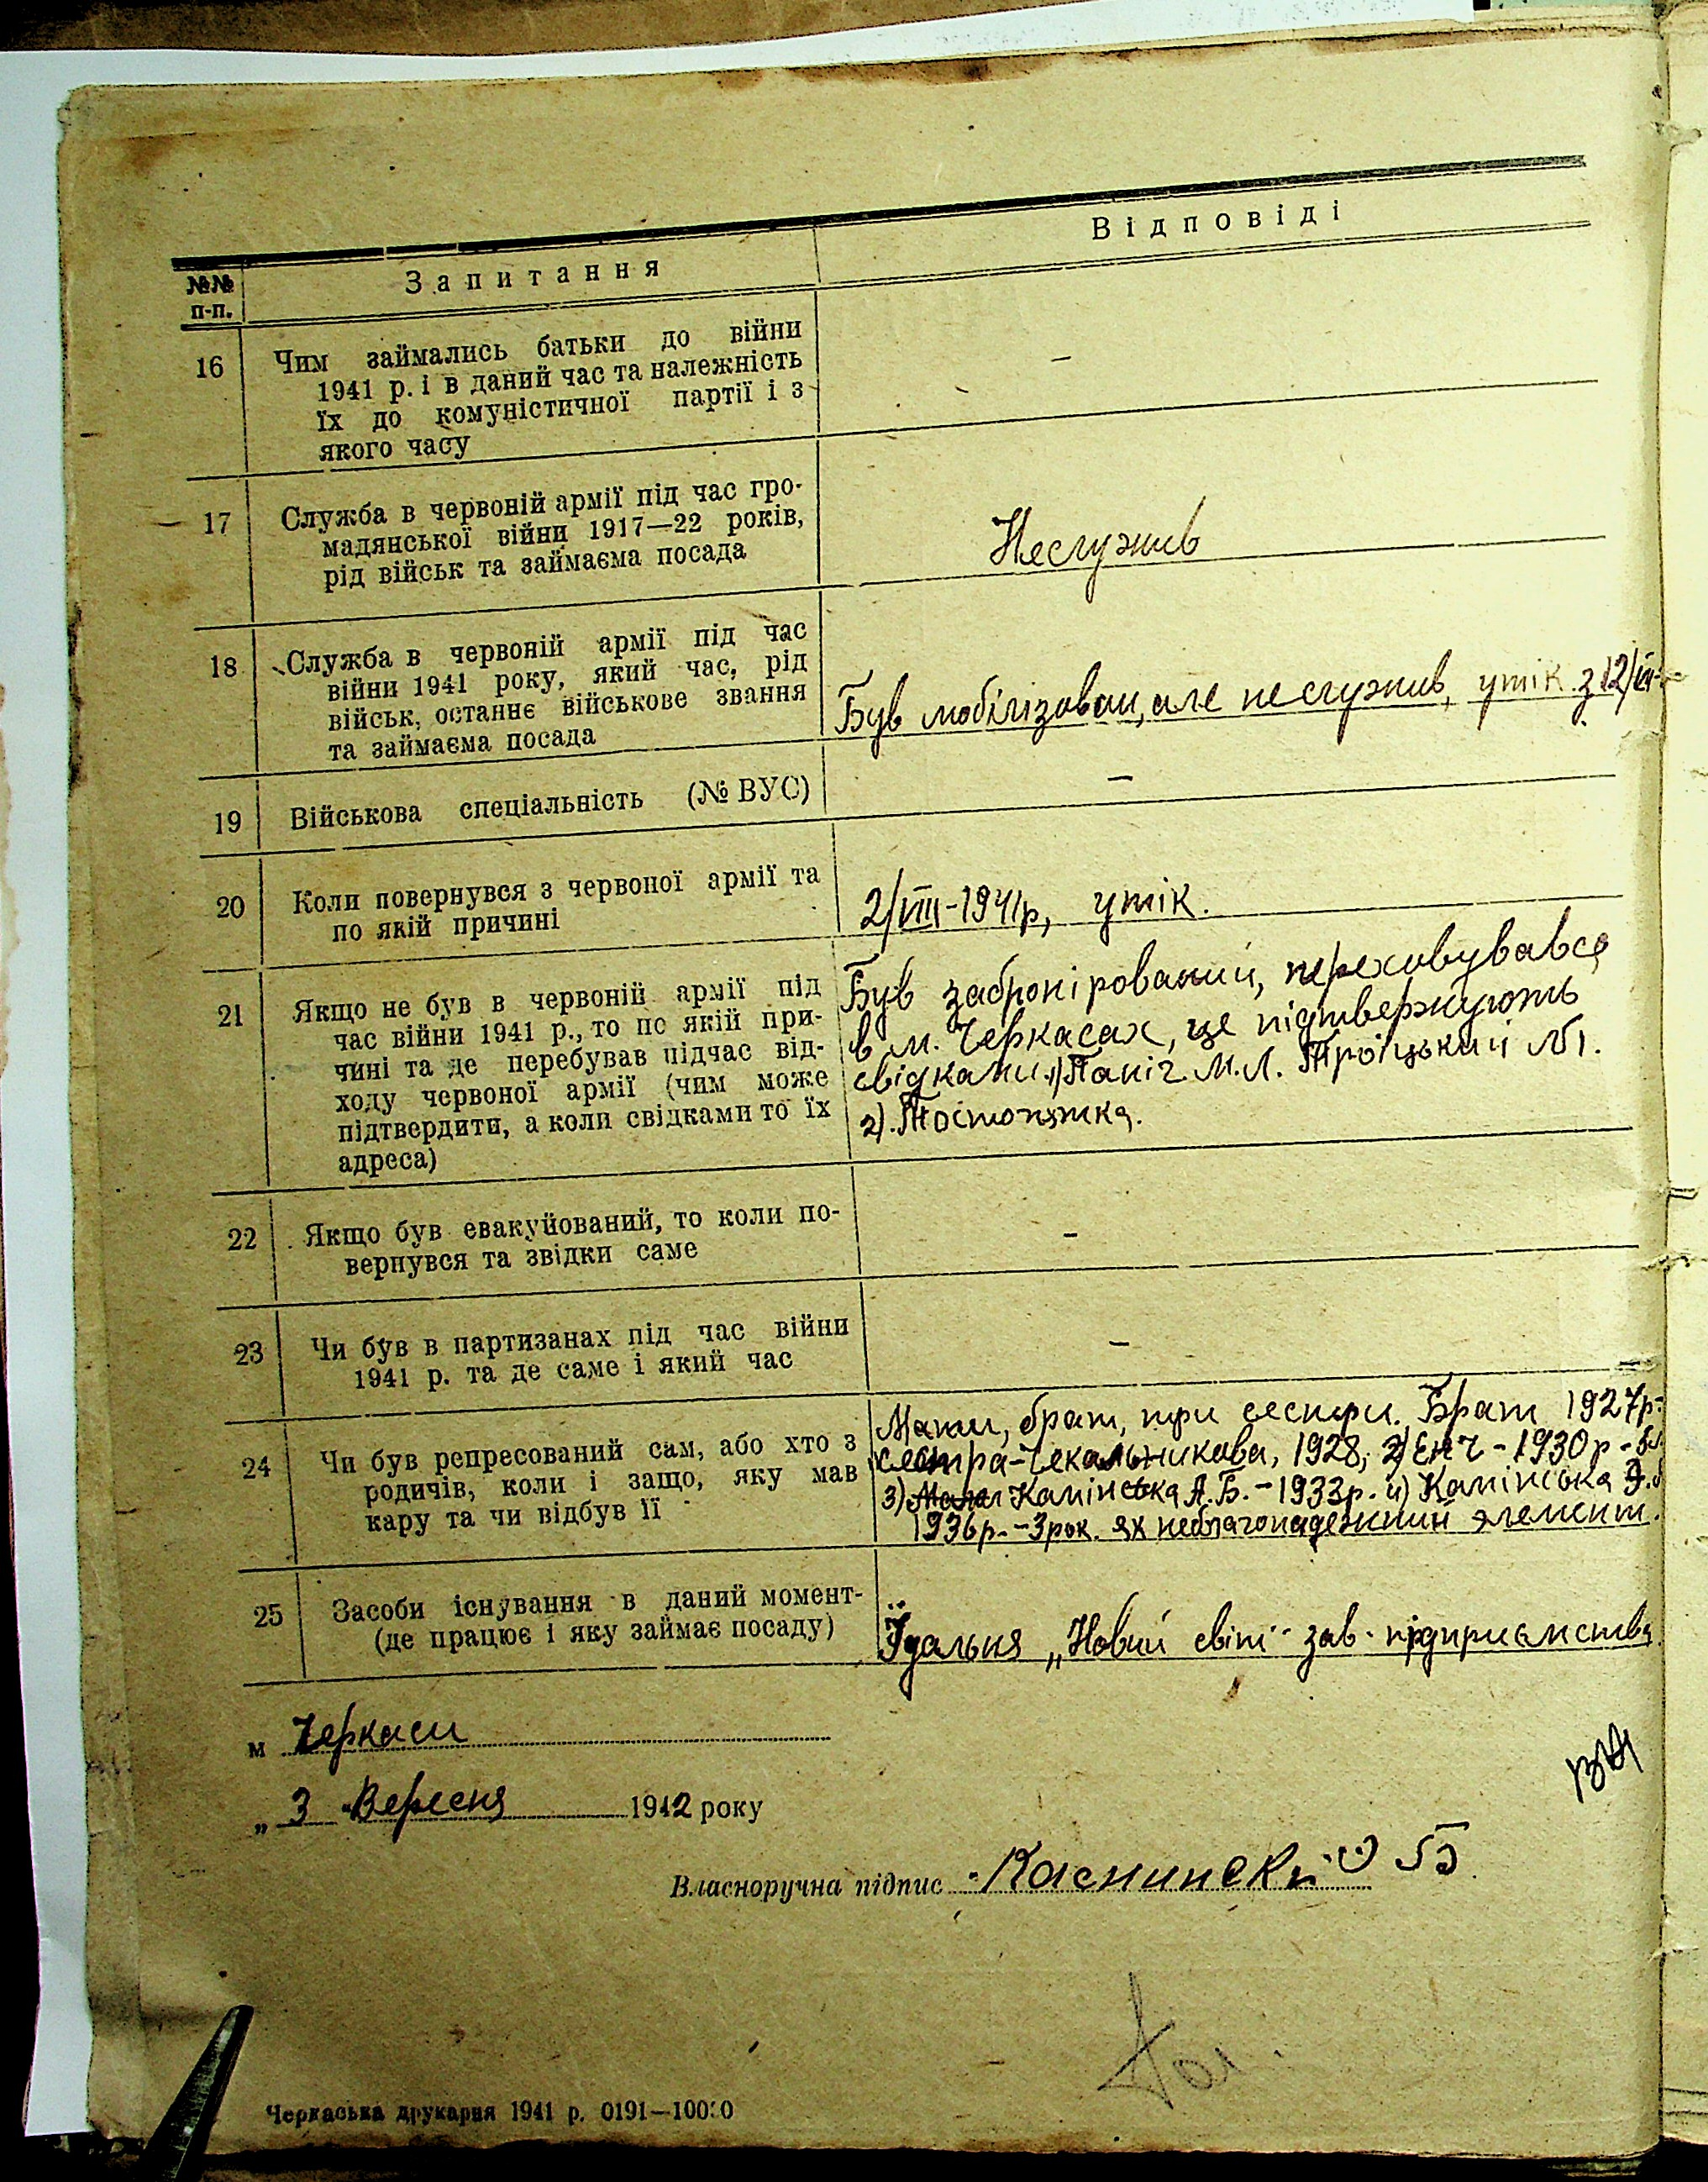 №№ п-п. Запитання Відповіді
16 Чим займались батьки до війни
1941 р. і в даний час та належність
їх до комуністичної партії і з
якого часу
–
17 Служба в червоній армії під час гро-
мадянської війни 1917—22 років,
рід військ та займаєма посада
Неслужив
18 Служба в червоній армії під час
війни 1941 року, який час, рід
військ, останнє військове звання
та займаєма посада
Був мобілізован, але неслужив, утік з 12/
19 Військова спеціальність (№ ВУС)
–
20 Коли повернувся з червоної армії та
по якій причині
2/VIII-1941р, утік.
21 Якщо не був в червоній армії під
час війни 1941 р., то по якій при-
чині та де перебував підчас від-
ходу червоної армії (чим може
підтвердити, а коли свідками то їх
адреса)
Був забронірований, переховувався
в м. Черкасах, це підтвержують
свідками. 1) М.Л. Троїцький №1.
2).
22 Якщо був евакуйований, то коли по-
вернувся та звідки саме
–
23 Чи був в партизанах під час війни
1941 р. та де саме і який час
–
24 Чи був репресований сам, або хто з
родичів, коли і защо, яку мав
кару та чи відбув її
Мати, брат, три сестри. Брат 1927р-
сестра-Чекальникова, 1928, 2) - 1930р -
3) Камінська А.Б. - 1933р. 4) Камінська
1936р. - 3рок. як неблагонадежний элемент.
25 Засоби існування в даний момент-
(де працює і яку займає посаду)
Їдальня „Новий світ" зав. підприємства
м Черкаси
„ 3 " Вересня 1942 року
Власноручна підпис
Черкаська друкарня 1941 р. 0191—10000